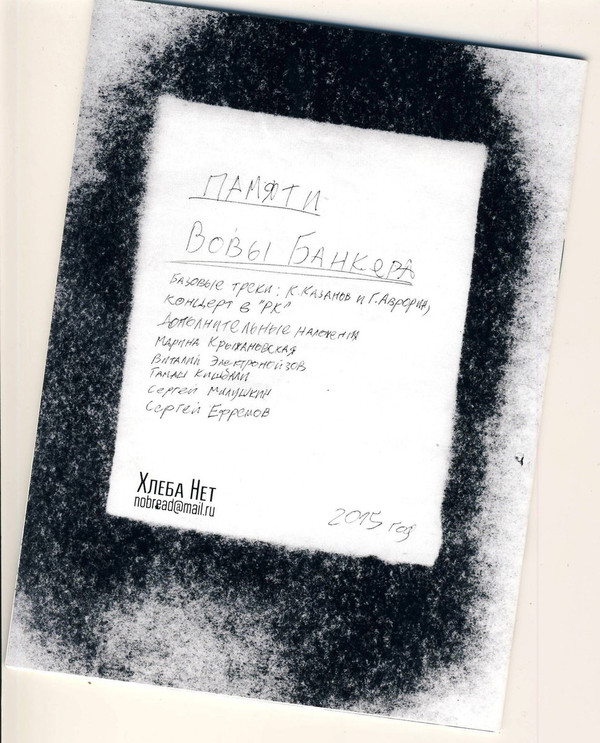 ПАМЯТИ
ВОВЫ БАНКЕРА
БАЗОВЫЕ ТРЕКИ: К. КАЗАНОВ И Г. АВРОРИН,
КОНЦЕРТ В "РК"
ДОПОЛНИТЕЛЬНЫЕ НАЛОЖЕНИЯ
МАРИНА КРЫЖАНОВСКАЯ
ВИТАЛИЙ ЭЛЕКТРОНОЙЗОВ
ТАМАШ КИШБАЛИ
СЕРГЕЙ МИЛУШКИН
СЕРГЕЙ ЕФРЕМОВ
ХЛЕБА НЕТ
nobread@mail.ru
2015 год